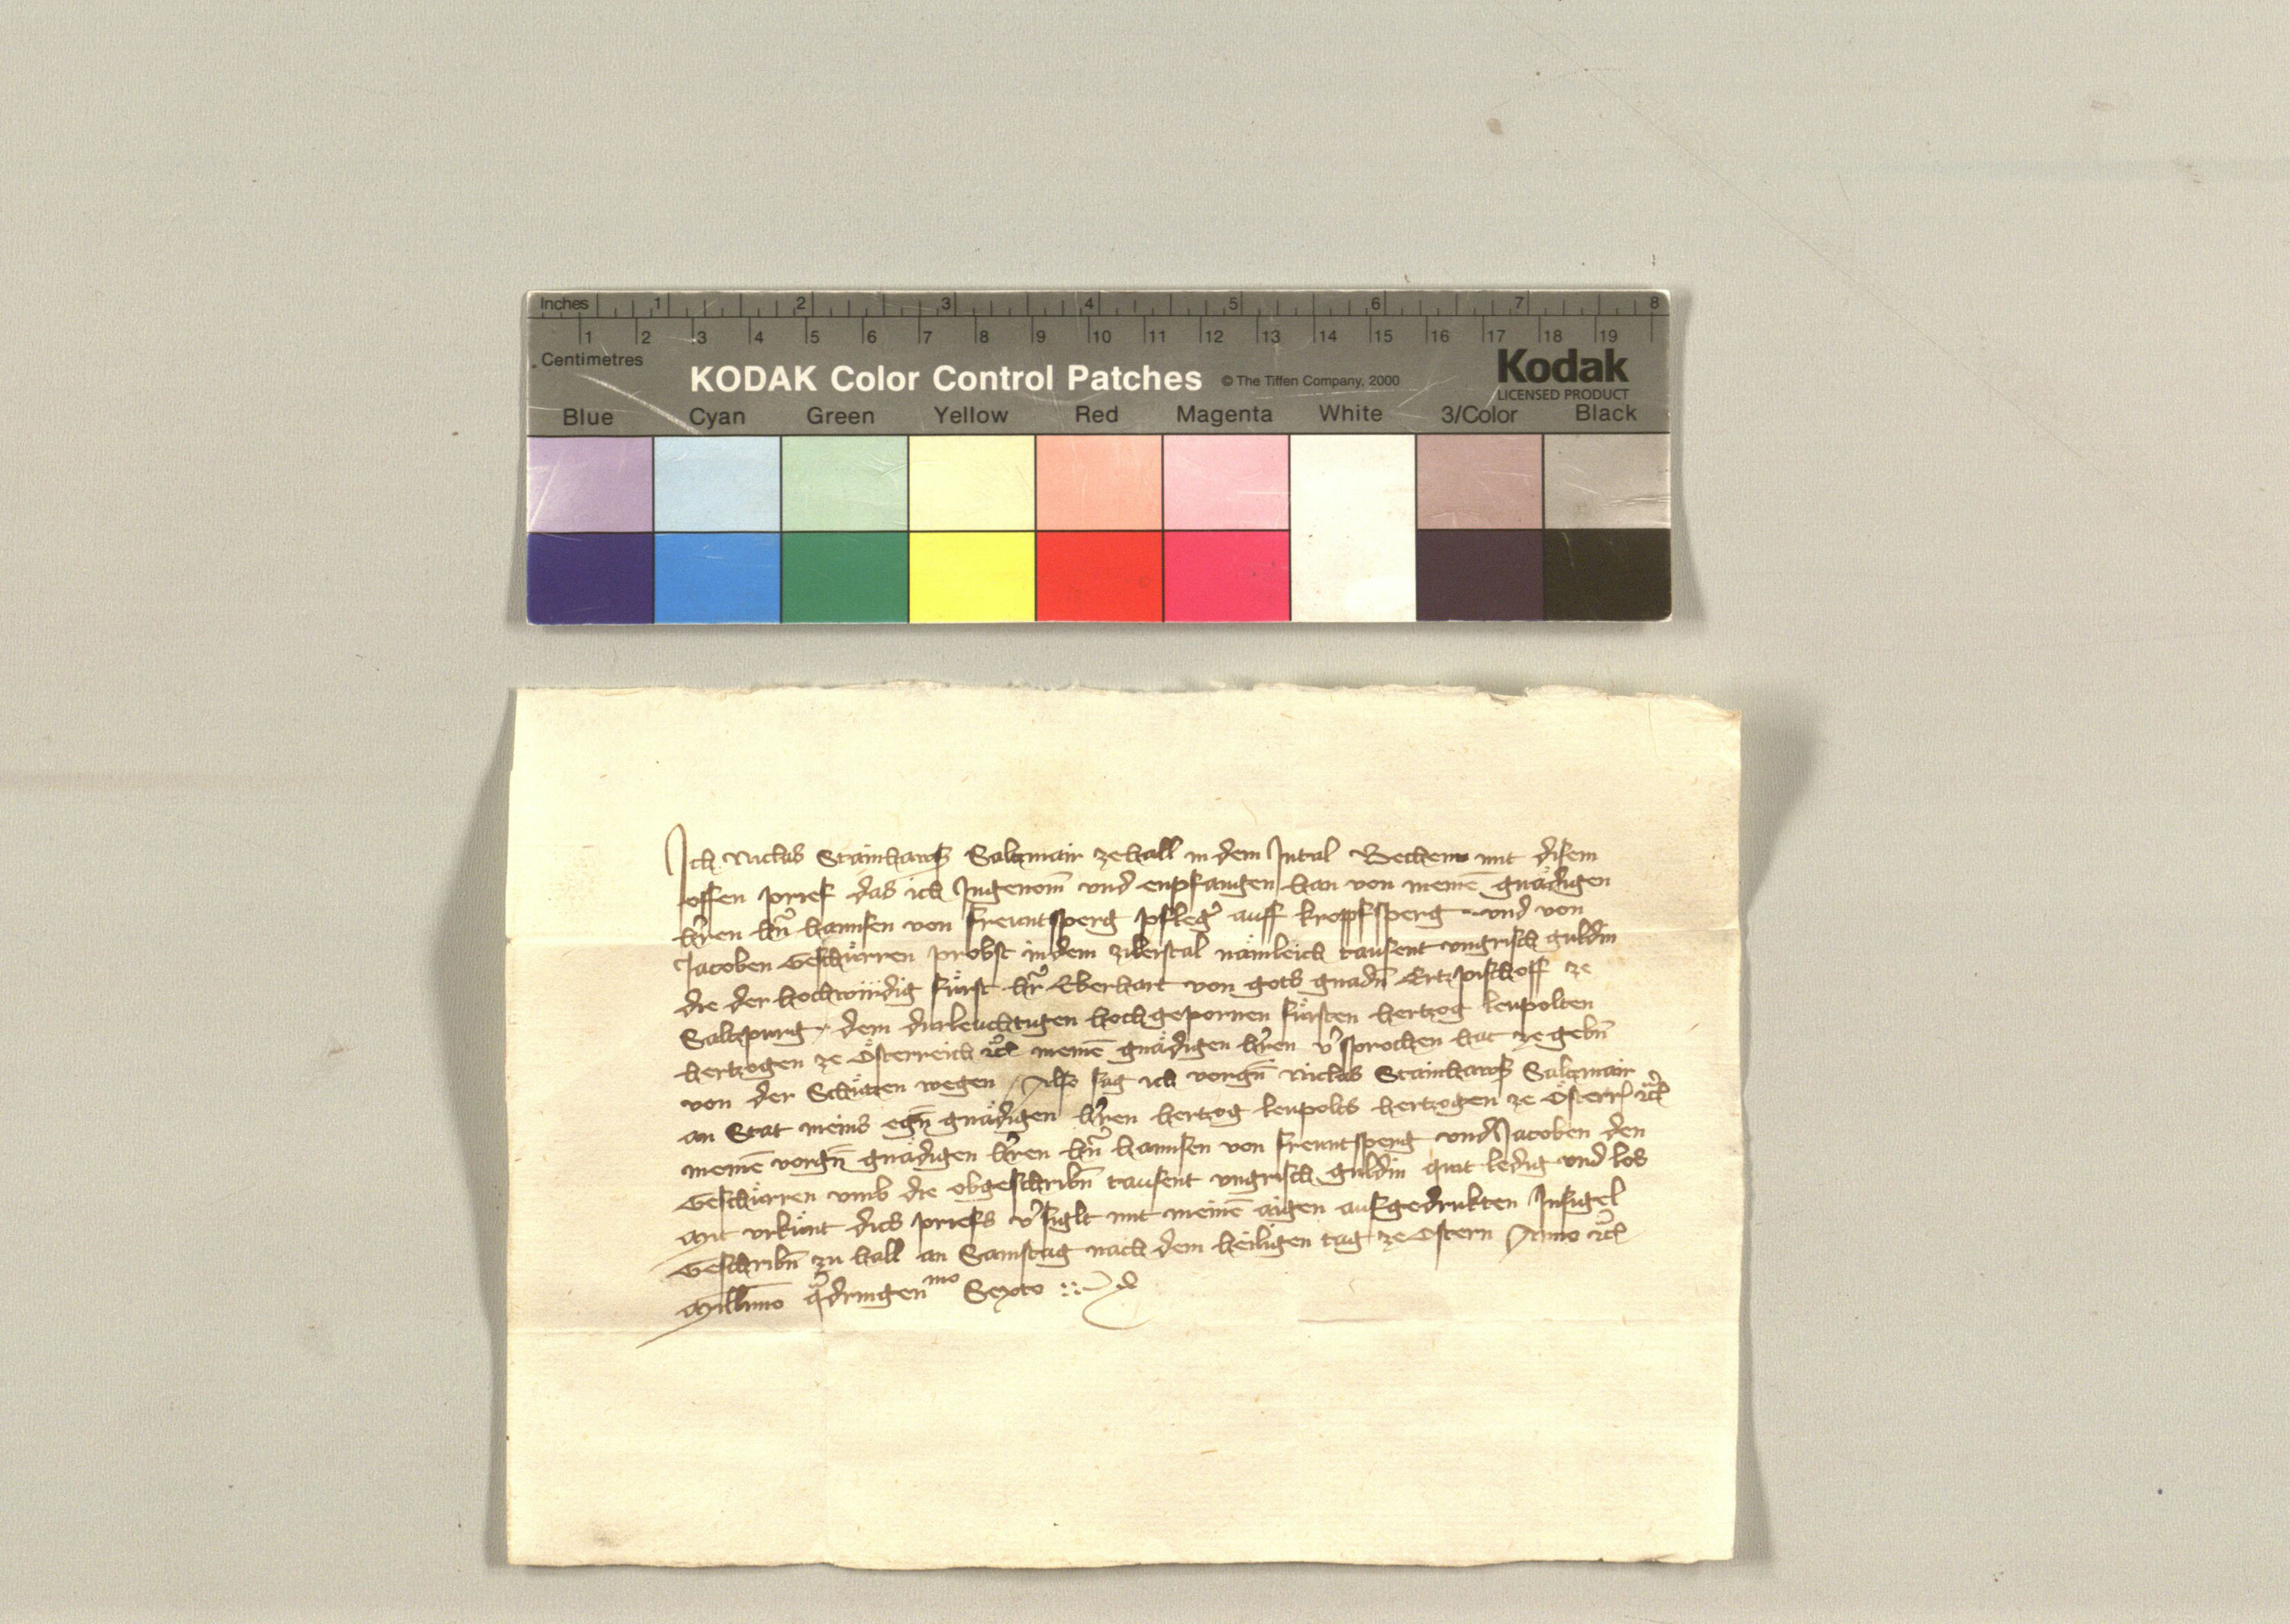 Inches 1 2 3 4 5 6 7 8
1 2 3 4 5 6 7 8 9 10 11 12 13 14 15 16 17 18 19
Centimetres
KODAK Color Control Patches © The Tiffen Company, 2000 Kodak
LICENSED PRODUCT
Blue Cyan Green Yellow Red Magenta White 3/Color Black
Ich Niclas Stainhaws Saltzmair ze hall in dem Intal Bechenn mit disem
offen prief das ich Ingenom̄ vnd enpfangen han von meinē gnädigen
h'ren hn̄ hannsen von freuntsperg pfleg' auff kropfsperg vnd von
Jacoben Geschürren probst in dem zilerstal nämleich tausent vngrisch guldein
die der hochwirdig fürst hr̄ Eberhart von gots gnadn̄ Ertzpischoff ze
Saltzpurg dem durleuchtigen hochgepornen fürsten hertzog leupolten
hertzogen ze Österreich etc̄ meinē gnädigen h'ren v'sprochen hat ze gebn̄
von der Schützen wegen / Also sag ich vorgn̄ Niclas Stainhaws Saltzmair
an Stat meins egn̄ gnädigen h'ren hertzog leupolts hertzogen ze Österr' etc̄
meinē vorgn̄ gnädigen h'ren hn̄ hannsen von freuntsperg vnd Jacoben den
Geschürren vmb die obgeschribn̄ tausent vngrisch guldein quit ledig vnd los
Mit vrkünt dics priefs v'siglt mit meinē aigen aufgedrukten Insigel
Geschribn̄ zu hall an Samstag nach dem heiligen tag ze Ostern Anno etc̄
Mill̄imo q̄dringen mo Sexto